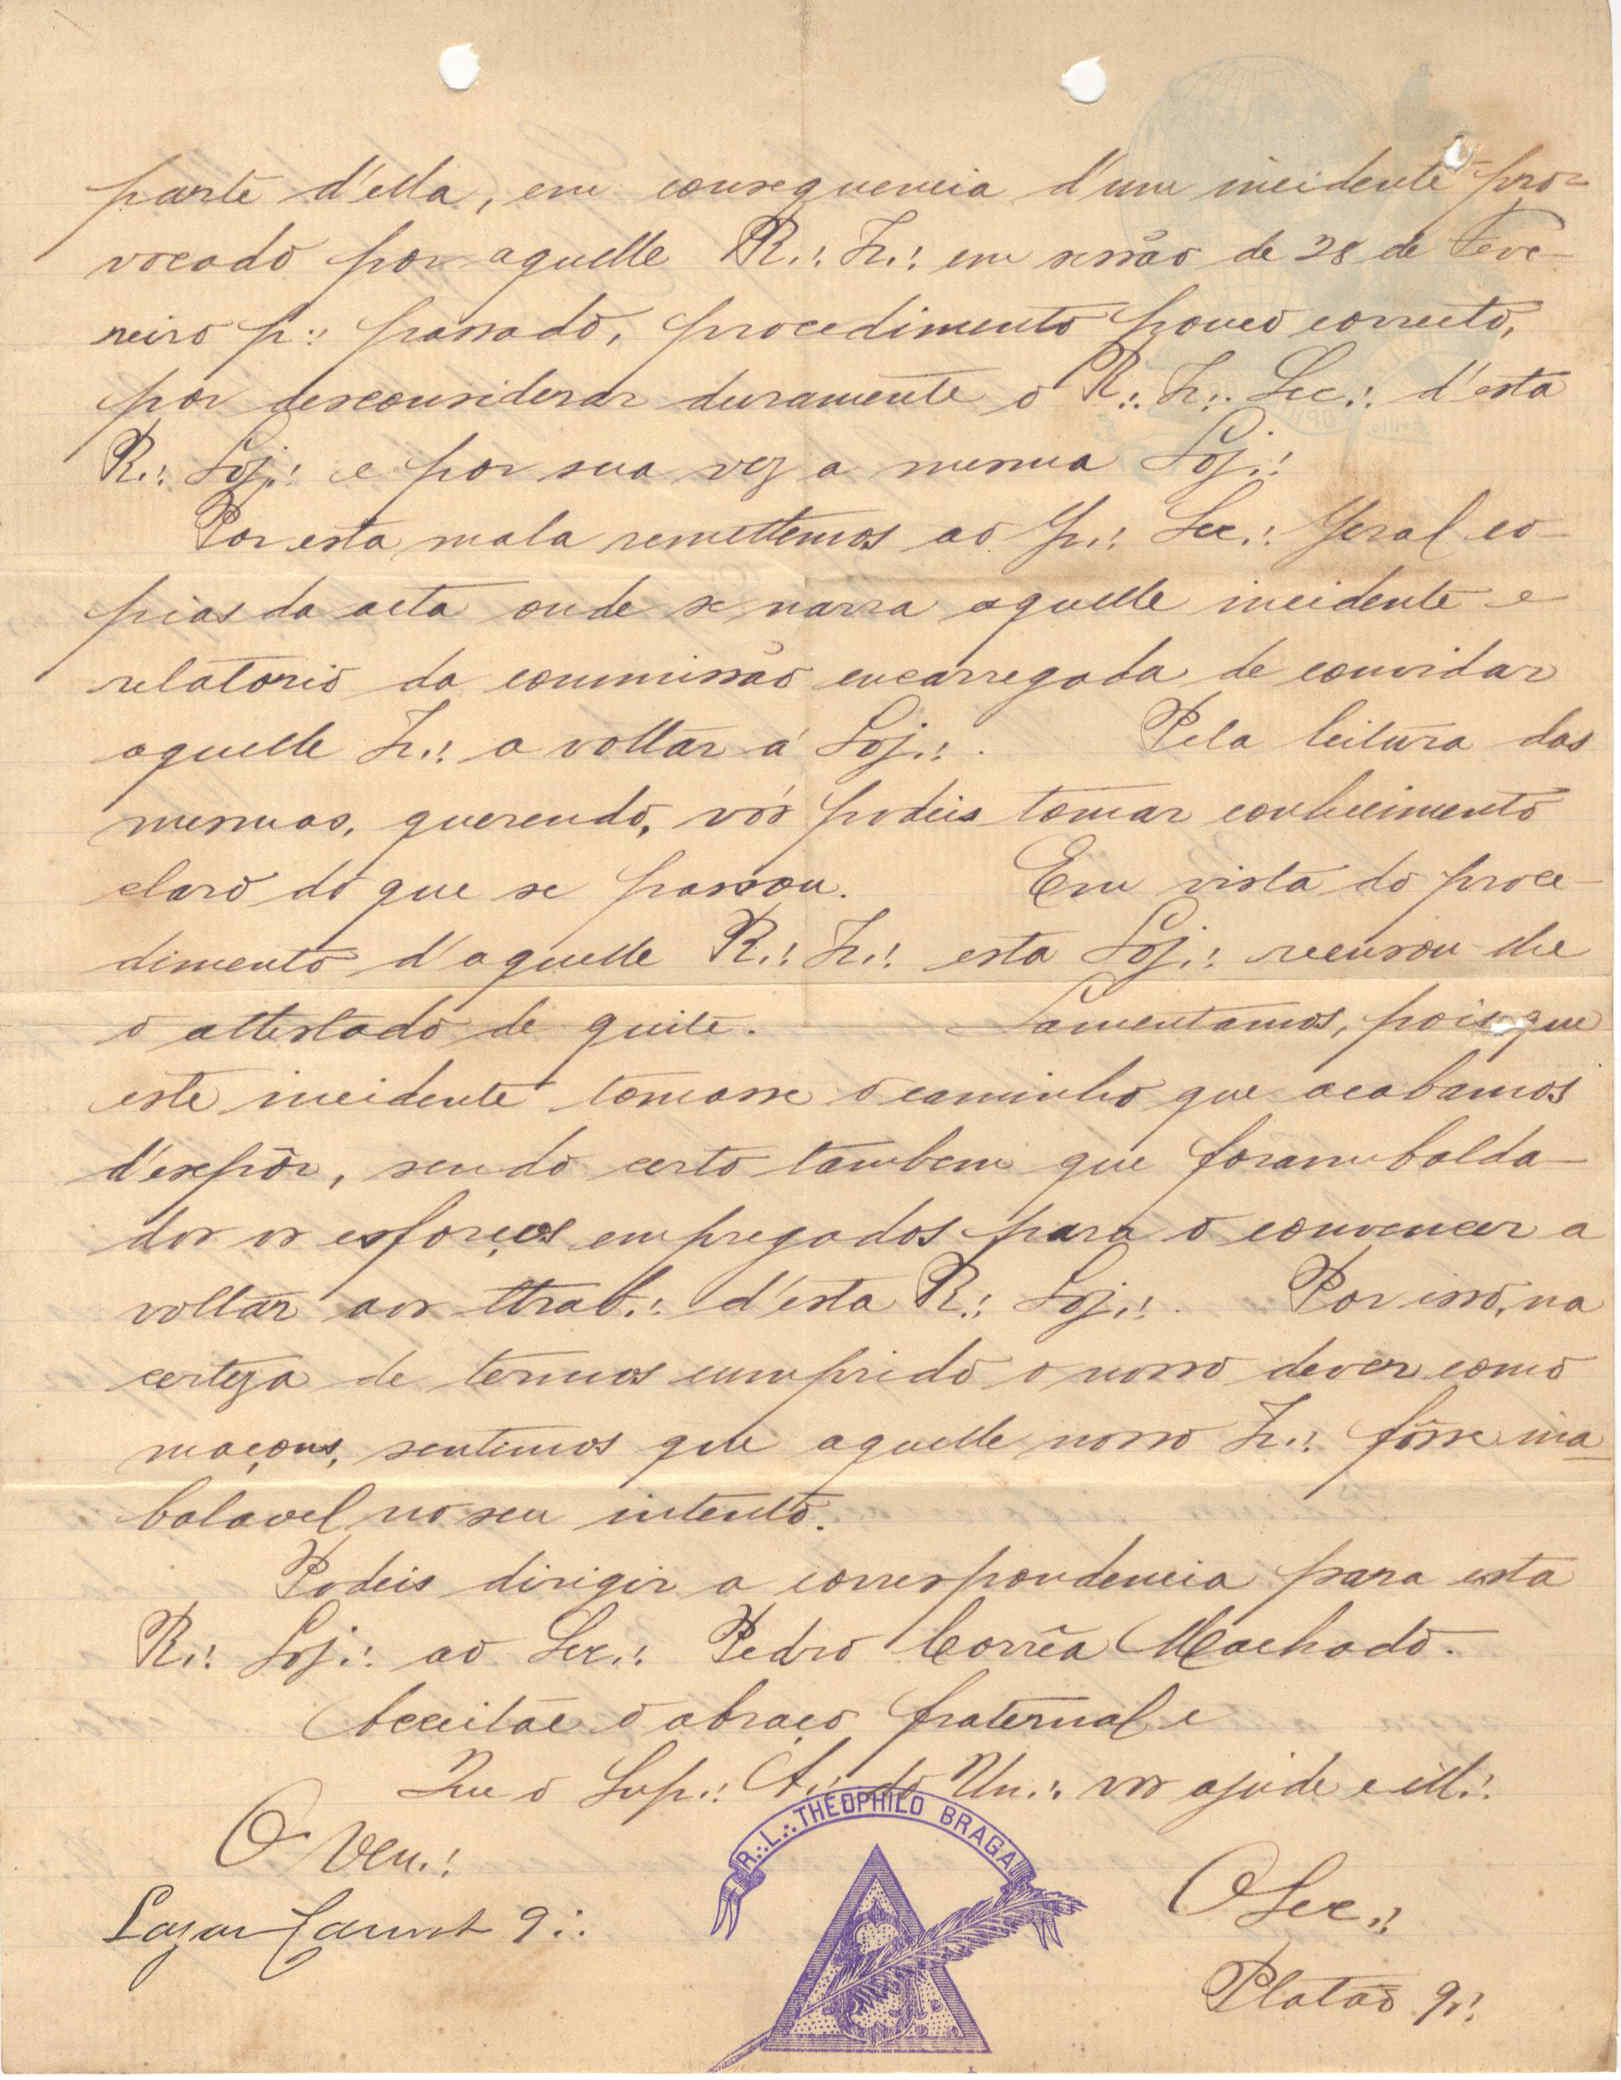 parte d'ella, em consequencia d'um incidente pro-
vocado por aquelle R∴ Ir∴ em sessão de 28 de Feve-
reiro p∴ passado, procedimento pouco correcto,
por desconsiderar duramente o R∴ Ir∴ Sec∴ d'esta
R∴ Loj∴ e por sua vez a mesma Loj∴
Por esta mala remettemos ao Gr∴ Sec∴ Geral co-
pias da acta onde se narra aquelle incidente e
relatorio da commissão encarregada de convidar
aquelle Ir∴ a voltar á Loj∴. Pela leitura das
mesmas, querendo, vós podeis tomar conhecimento
claro do que se passou. Em vista do proce-
dimento d'aquelle R∴ Ir∴ esta Loj∴ recusou-lhe
o attestado de quite. Lamentamos, pois que
este incidente tomasse o caminho que acabamos
d'expôr, sendo certo tambem que foram balda-
dos os esforços empregados para o convencer a
voltar aos ttrab∴ d'esta R∴ Loj∴. Por isso, na
certeza de termos cumprido o nosso dever como
maçons, sentimos que aquelle nosso Ir∴ fôsse ina
balavel no seu intento.
Podeis dirigir a correspondencia para esta
R∴ Loj∴ ao Sec∴ Pedro Corrêa Machado.
Acceitae o abraço fraternal e
Que o Sup∴ A∴ do Un∴ vos ajude e ill∴
R∴ L∴ THEOPHILO BRAGA
O Ven∴
O Sec∴
Lazare Carnot 9∴
Platão 9∴